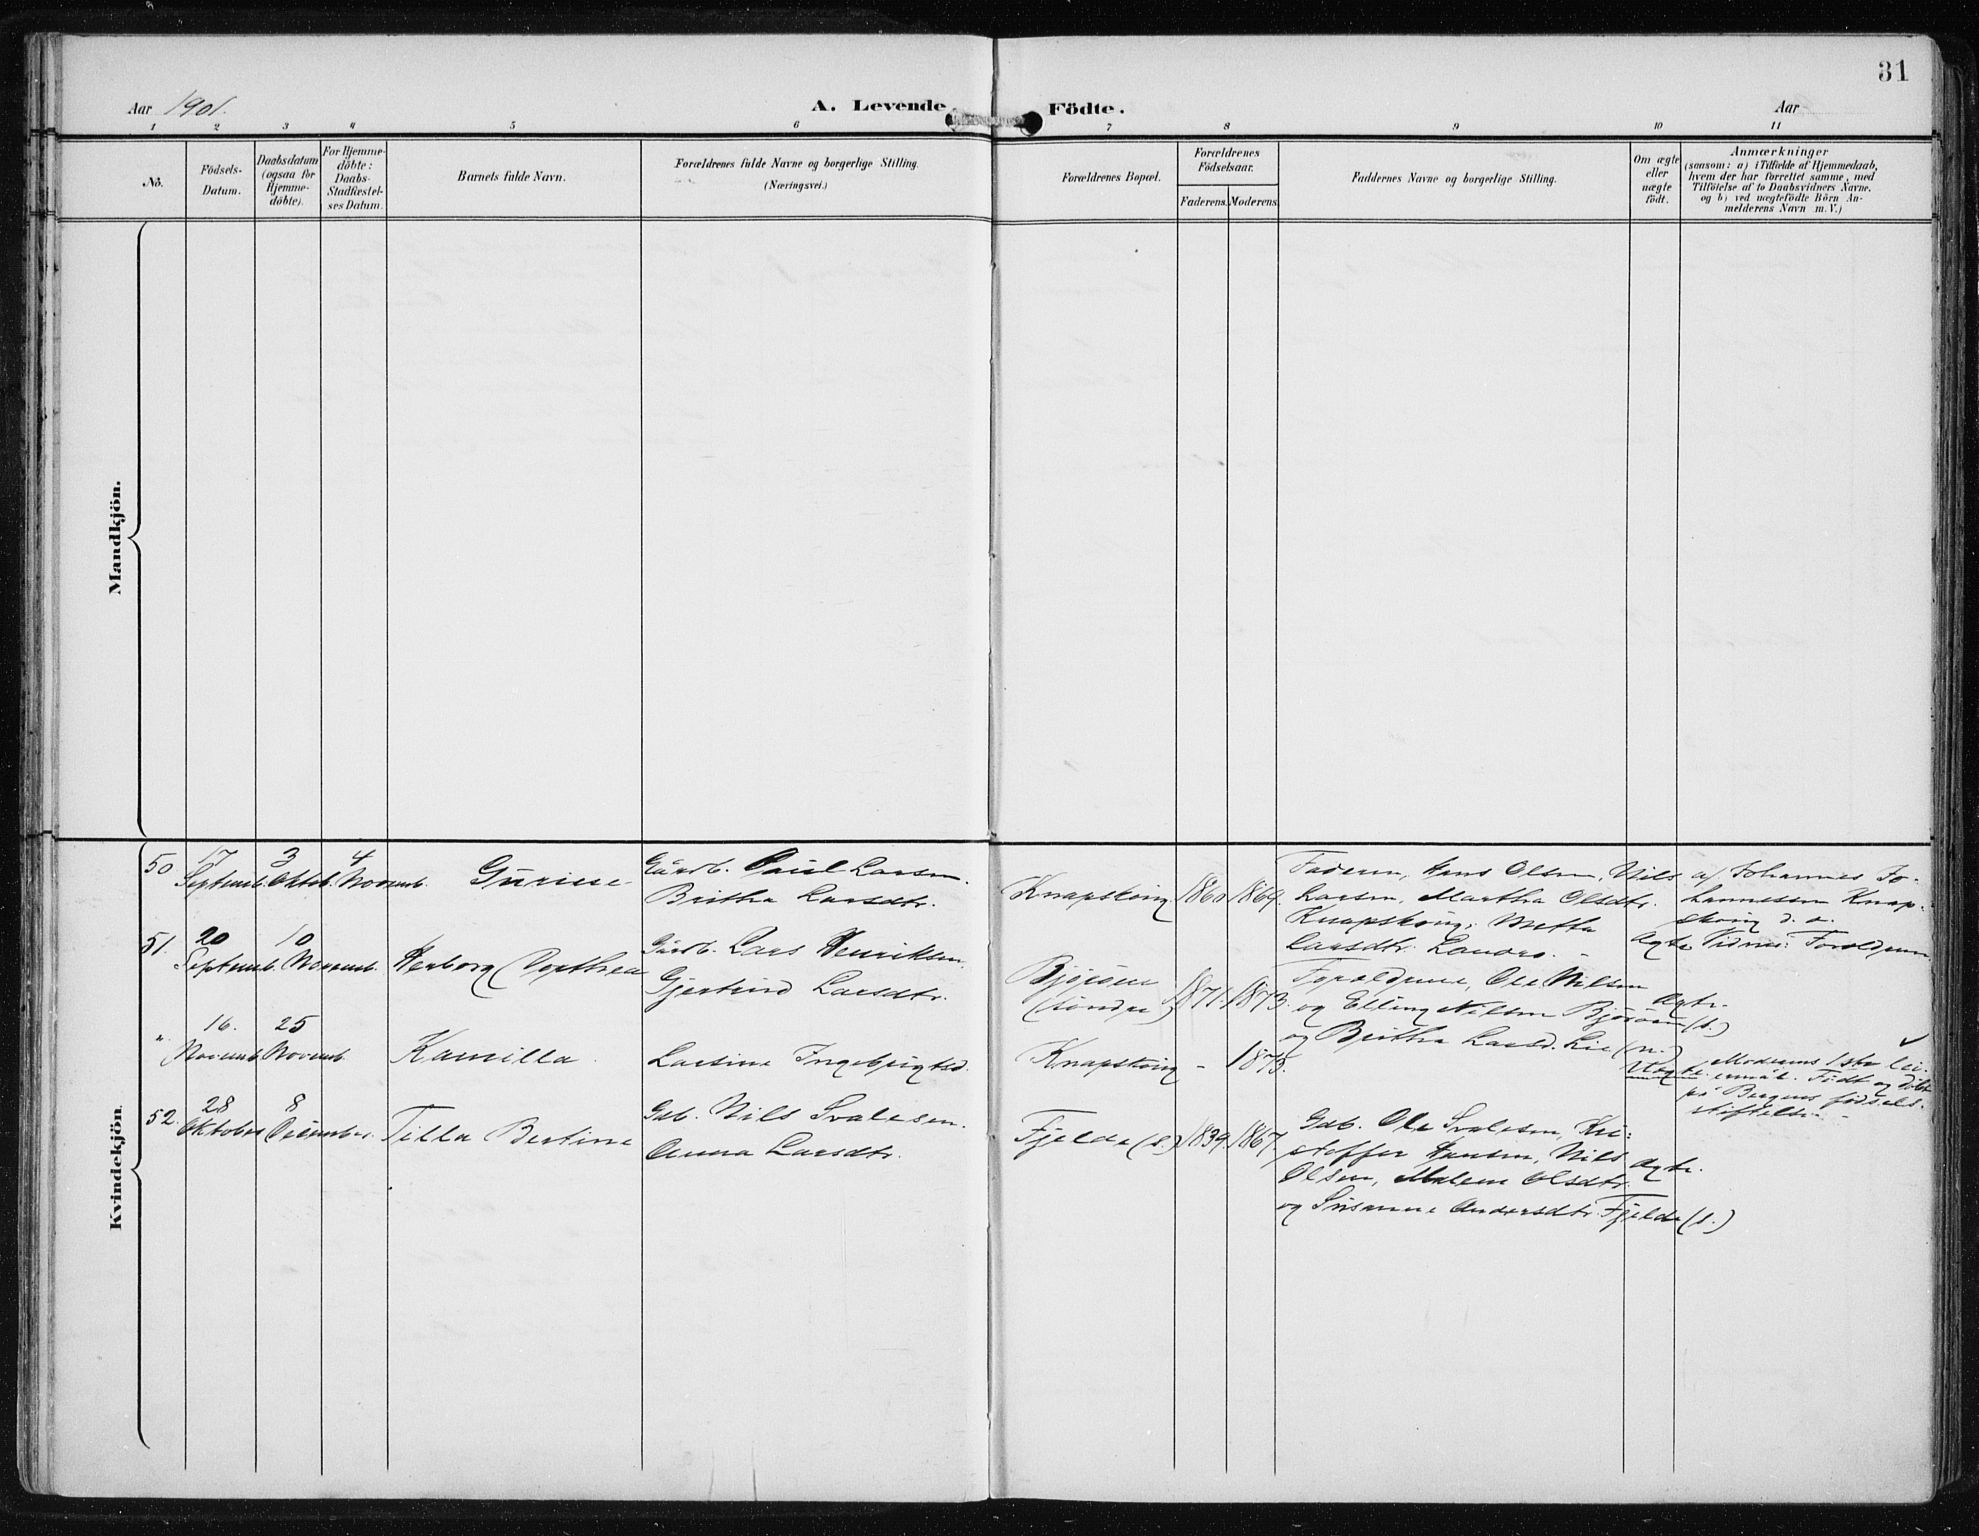 31
Aar 1901.
A. Levende Födte.
Aar
1 2 3 4 5 6 7 8 9 10 11
No.
Födsels-Datum.
Daabsdatum (ogsaa for Hjemme-döbte).
For Hjemme-döbte: Daabs-Stadfæstel-ses Datum.
Barnets fulde Navn.
Forældrenes fulde Navne og borgerlige Stilling.
(Næringsvei.)
Forældrenes Bopæl.
Forældrenes Födselsaar.
Faderens. Moderens.
Faddernes Navne og borgerlige Stilling.
Om ægte eller uægte födt.
Anmærkninger
(saasom: a) i Tilfælde af Hjemmedaab,
hvem der har forrettet samme, med
Tilföielse af to Daabsvidners Navne.
og b) ved uægtefödte Börn An-
melderens Navn m. V.)
Mandkjön.
Kvindekjön.
50
17 Septemb.
3 Oktob.
4 Novemb.
Gurine
Gårdb. Paul Larsen.
Britha Larsdtr.
Knapskōig
1860
1869.
Faderen, Hans Olsen, Nils
Larsen, Martha Olsdtr.
Knapskōig, Metha
Larsdtr. Landro.
Ægte
a/ Johannes Jo-
hannessen Knap-
skōig d. o.
Vidner: Forældrene
51.
20 Septemb.
10 Novemb.
Herborg Dorthea
Gårdb. Lars Henriksen.
Gjertrud Larsdtr.
Bjōröen
(söndre)
1871.
1873.
Forældrene, Ole Nilsen
og Elling Nilsen Bjōröen (s.)
og Britha Larsd. Lie (n.)
Ægte.
"
16. Novemb.
25 Novemb.
Kamilla
Larsine Ingebrigtsd.
Knapskōig
-
1875.
Uægte.
Moderens 1ste lei-
ermål. Född og döbt
på Bergens fødsels-
stiftelse.
52.
28 Oktober
8 December.
Tilla Bertine
Gdb. Nils Svalesen.
Anna Larsdtr.
Fjelde (s.)
1839.
1867.
Gdb. Ole Svalesen, Kri-
stoffer Hansen, Nils
Olsen, Malene Olsdtr.
og Susanne Andersdtr. Fjelde (s.)
Ægte.